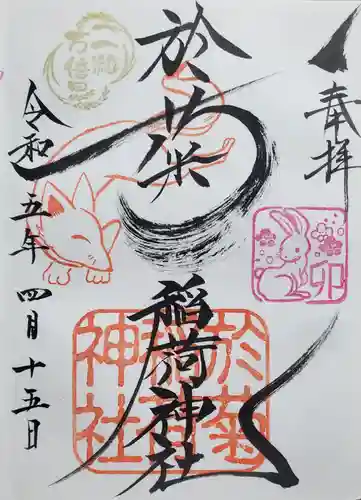 奉拝
卯
於菊
稲荷神社
於菊
稲荷
神社
一粒
万倍
令和五年四月十五日